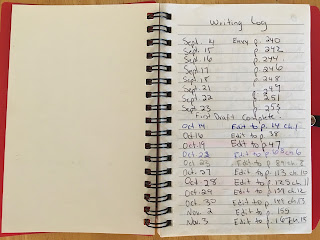 Writing Log
Sept. 4 Envy p. 240
Sept. 15 p. 242
Sept. 16 p. 244
Sept. 17 p. 246
Sept. 18 p. 248
Sept. 21 " 249
Sept. 22 p. 251
Sept. 23 p. 253
First Draft Complete
Oct 14 Edit to p. 14 ch. 1
Oct 16 Edit to p. 38
Oct 19 Edit to p. 47
Oct 23 Edit to p.
Oct 25 Edit to p. 89 ch. 8
Oct. 27 Edit to p. 113 ch. 10
Oct 28 Edit to p. 123 ch. 11
Oct. 29 Edit to p. 139 ch. 12
Oct. 30 Edit to p. 149 ch. 13
Nov. 2 Edit to p. 155
Nov. 3 Edit to p. 167 ch. 15